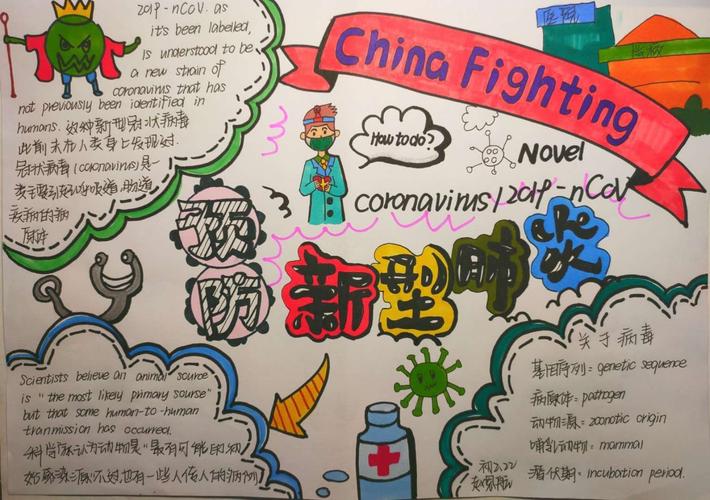 2019-nCoV. as
it's been labelled,
is understood to be
a new strain of
coronavirus that has
not previously been identified in
humans. 这种新型冠状病毒
此前未在人类身上发现过.
冠状病毒(coronavirus)是一
类主要引起呼吸道、肠道
疾病的病
原体
China Fighting
医院
How to do?
Novel
coronavirus/2019-nCoV
预防
新型肺炎
Scientists believe an animal source
is "the most likely primary sourse"
but that some human-to-human
tranmission has occurred.
科学家认为动物是"最有可能的初
始感染源",不过,也有一些人传人的病例
关于病毒
基因序列: genetic sequence
病原体: pathogen
动物源: zoonotic origin
哺乳动物: mammal
潜伏期: incubation period.
初2.22